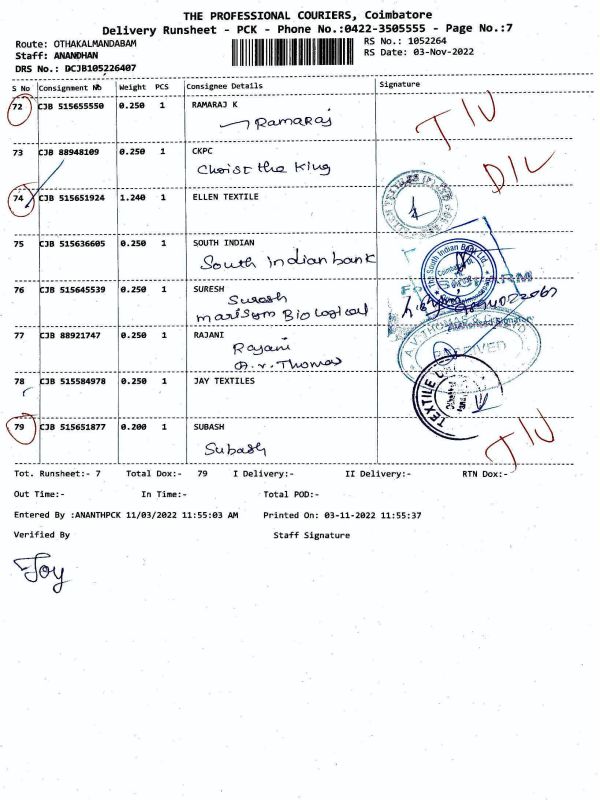 THE PROFESSIONAL COURIERS, Coimbatore
Delivery Runsheet - PCK - Phone No.:0422-3505555 - Page No.:7
Route: OTHAKALMANDABAM
RS No.: 1052264
Staff: ANANDHAN
RS Date: 03-Nov-2022
DRS No.: DCJB105226407
S No Consignment No Weight PCS Consignee Details Signature
72 CJB 515655550 0.250 1 RAMARAJ K
Ramaraj
T/U
73 CJB 88948109 0.250 1 CKPC
Christ the King
D/L
74 CJB 515651924 1.240 1 ELLEN TEXTILE
75 CJB 515636605 0.250 1 SOUTH INDIAN
South indian bank
The South Indian Bank Ltd
76 CJB 515645539 0.250 1 SURESH
Suresh
Marisym Biological
77 CJB 88921747 0.250 1 RAJANI
Rajani
A.V. Thomas
A.V. THOMAS
RECEIVED
78 CJB 515584978 0.250 1 JAY TEXTILES
TEXTILE
79 CJB 515651877 0.200 1 SUBASH
Subash
T/U
Tot. Runsheet:- 7 Total Dox:- 79 I Delivery:- II Delivery:- RTN Dox:-
Out Time:- In Time:- Total POD:-
Entered By :ANANTHPCK 11/03/2022 11:55:03 AM Printed On: 03-11-2022 11:55:37
Verified By Staff Signature
Joy